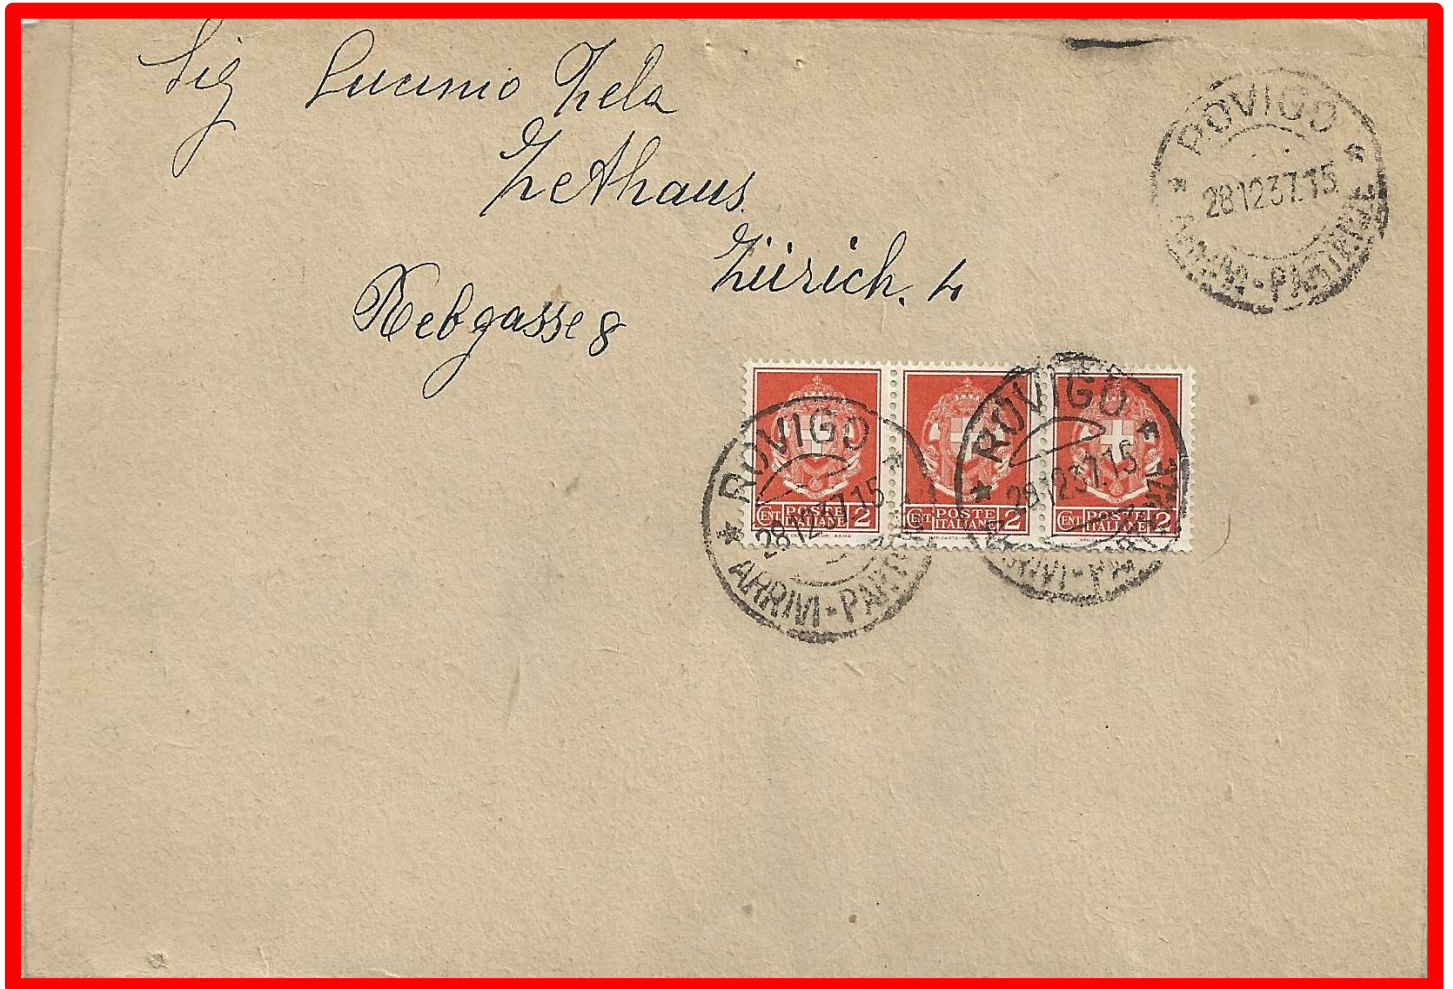 Sig Lucinio Zela
Zethaus
Zürich. 4
Rebgasse 8
ROVIGO
28.12.37.15
ARRIVI-PARTENZE
CENT POSTE ITALIANE 2
CENT POSTE ITALIANE 2
CENT POSTE ITALIANE 2
ROVIGO
28.12.37.15
ARRIVI-PARTENZE
ROVIGO
28.12.37.15
ARRIVI-PARTENZE